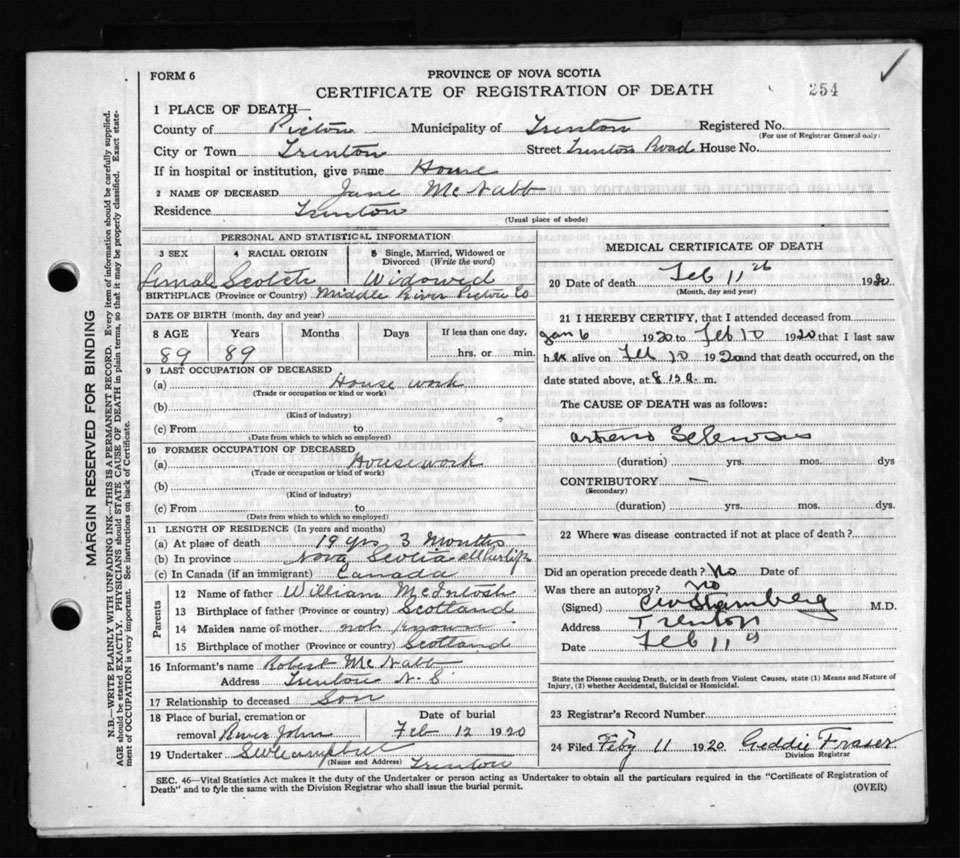 FORM 6
PROVINCE OF NOVA SCOTIA
CERTIFICATE OF REGISTRATION OF DEATH
254
1 PLACE OF DEATH—
County of Pictou Municipality of Trenton Registered No.
(For use of Registrar General only)
City or Town Trenton Street Trenton Road House No.
If in hospital or institution, give name House
2 NAME OF DECEASED Jane McNabb
Residence Trenton
(Usual place of abode)
PERSONAL AND STATISTICAL INFORMATION
3 SEX 4 RACIAL ORIGIN 5 Single, Married, Widowed or Divorced (Write the word)
Femal Scotch Widowed
BIRTHPLACE (Province or Country) Middle River Pictou Co
DATE OF BIRTH (month, day and year)
8 AGE Years Months Days If less than one day,
89 89 hrs. or min.
9 LAST OCCUPATION OF DECEASED
(a) House work
(Trade or occupation or kind of work)
(b)
(Kind of industry)
(c) From to
(Date from which to which so employed)
10 FORMER OCCUPATION OF DECEASED
(a) Housework
(Trade or occupation or kind of work)
(b)
(Kind of industry)
(c) From to
(Date from which to which so employed)
11 LENGTH OF RESIDENCE (In years and months)
(a) At place of death 19 yrs 3 Months
(b) In province Nova Scotia all her life
(c) In Canada (if an immigrant) Canada
Parents
12 Name of father William McIntosh
13 Birthplace of father (Province or country) Scotland
14 Maiden name of mother not known
15 Birthplace of mother (Province or country) Scotland
16 Informant's name Robert McNabb
Address Trenton N. S
17 Relationship to deceased Son
18 Place of burial, cremation or removal River John Date of burial Feb 12 1920
19 Undertaker S W Campbell
(Name and Address) Trenton
MEDICAL CERTIFICATE OF DEATH
20 Date of death Feb 11th 1920
(Month, day and year)
21 I HEREBY CERTIFY, that I attended deceased from
Jan 6 1920 to Feb 10 1920 that I last saw
her alive on Feb 10 1920 and that death occurred, on the
date stated above, at 8 15 a. m.
The CAUSE OF DEATH was as follows:
(duration) yrs. mos. dys
CONTRIBUTORY —
(Secondary)
(duration) yrs. mos. dys.
22 Where was disease contracted if not at place of death?
Did an operation precede death? No Date of
Was there an autopsy? No
(Signed) M.D.
Address Trenton
Date Feb 11
State the Disease causing Death, or in death from Violent Causes, state (1) Means and Nature of
Injury, (2) whether Accidental, Suicidal or Homicidal.
23 Registrar's Record Number
24 Filed Feby 11 1920 Geddie Fraser
Division Registrar
SEC. 46—Vital Statistics Act makes it the duty of the Undertaker or person acting as Undertaker to obtain all the particulars required in the "Certificate of Registration of
Death" and to fyle the same with the Division Registrar who shall issue the burial permit. (OVER)
MARGIN RESERVED FOR BINDING
N.B.—WRITE PLAINLY WITH UNFADING INK—THIS IS A PERMANENT RECORD. Every item of information should be carefully supplied.
AGE should be stated EXACTLY. PHYSICIANS should STATE CAUSE OF DEATH in plain terms, so that it may be properly classified. Exact state-
ment of OCCUPATION is very important. See instructions on back of Certificate.